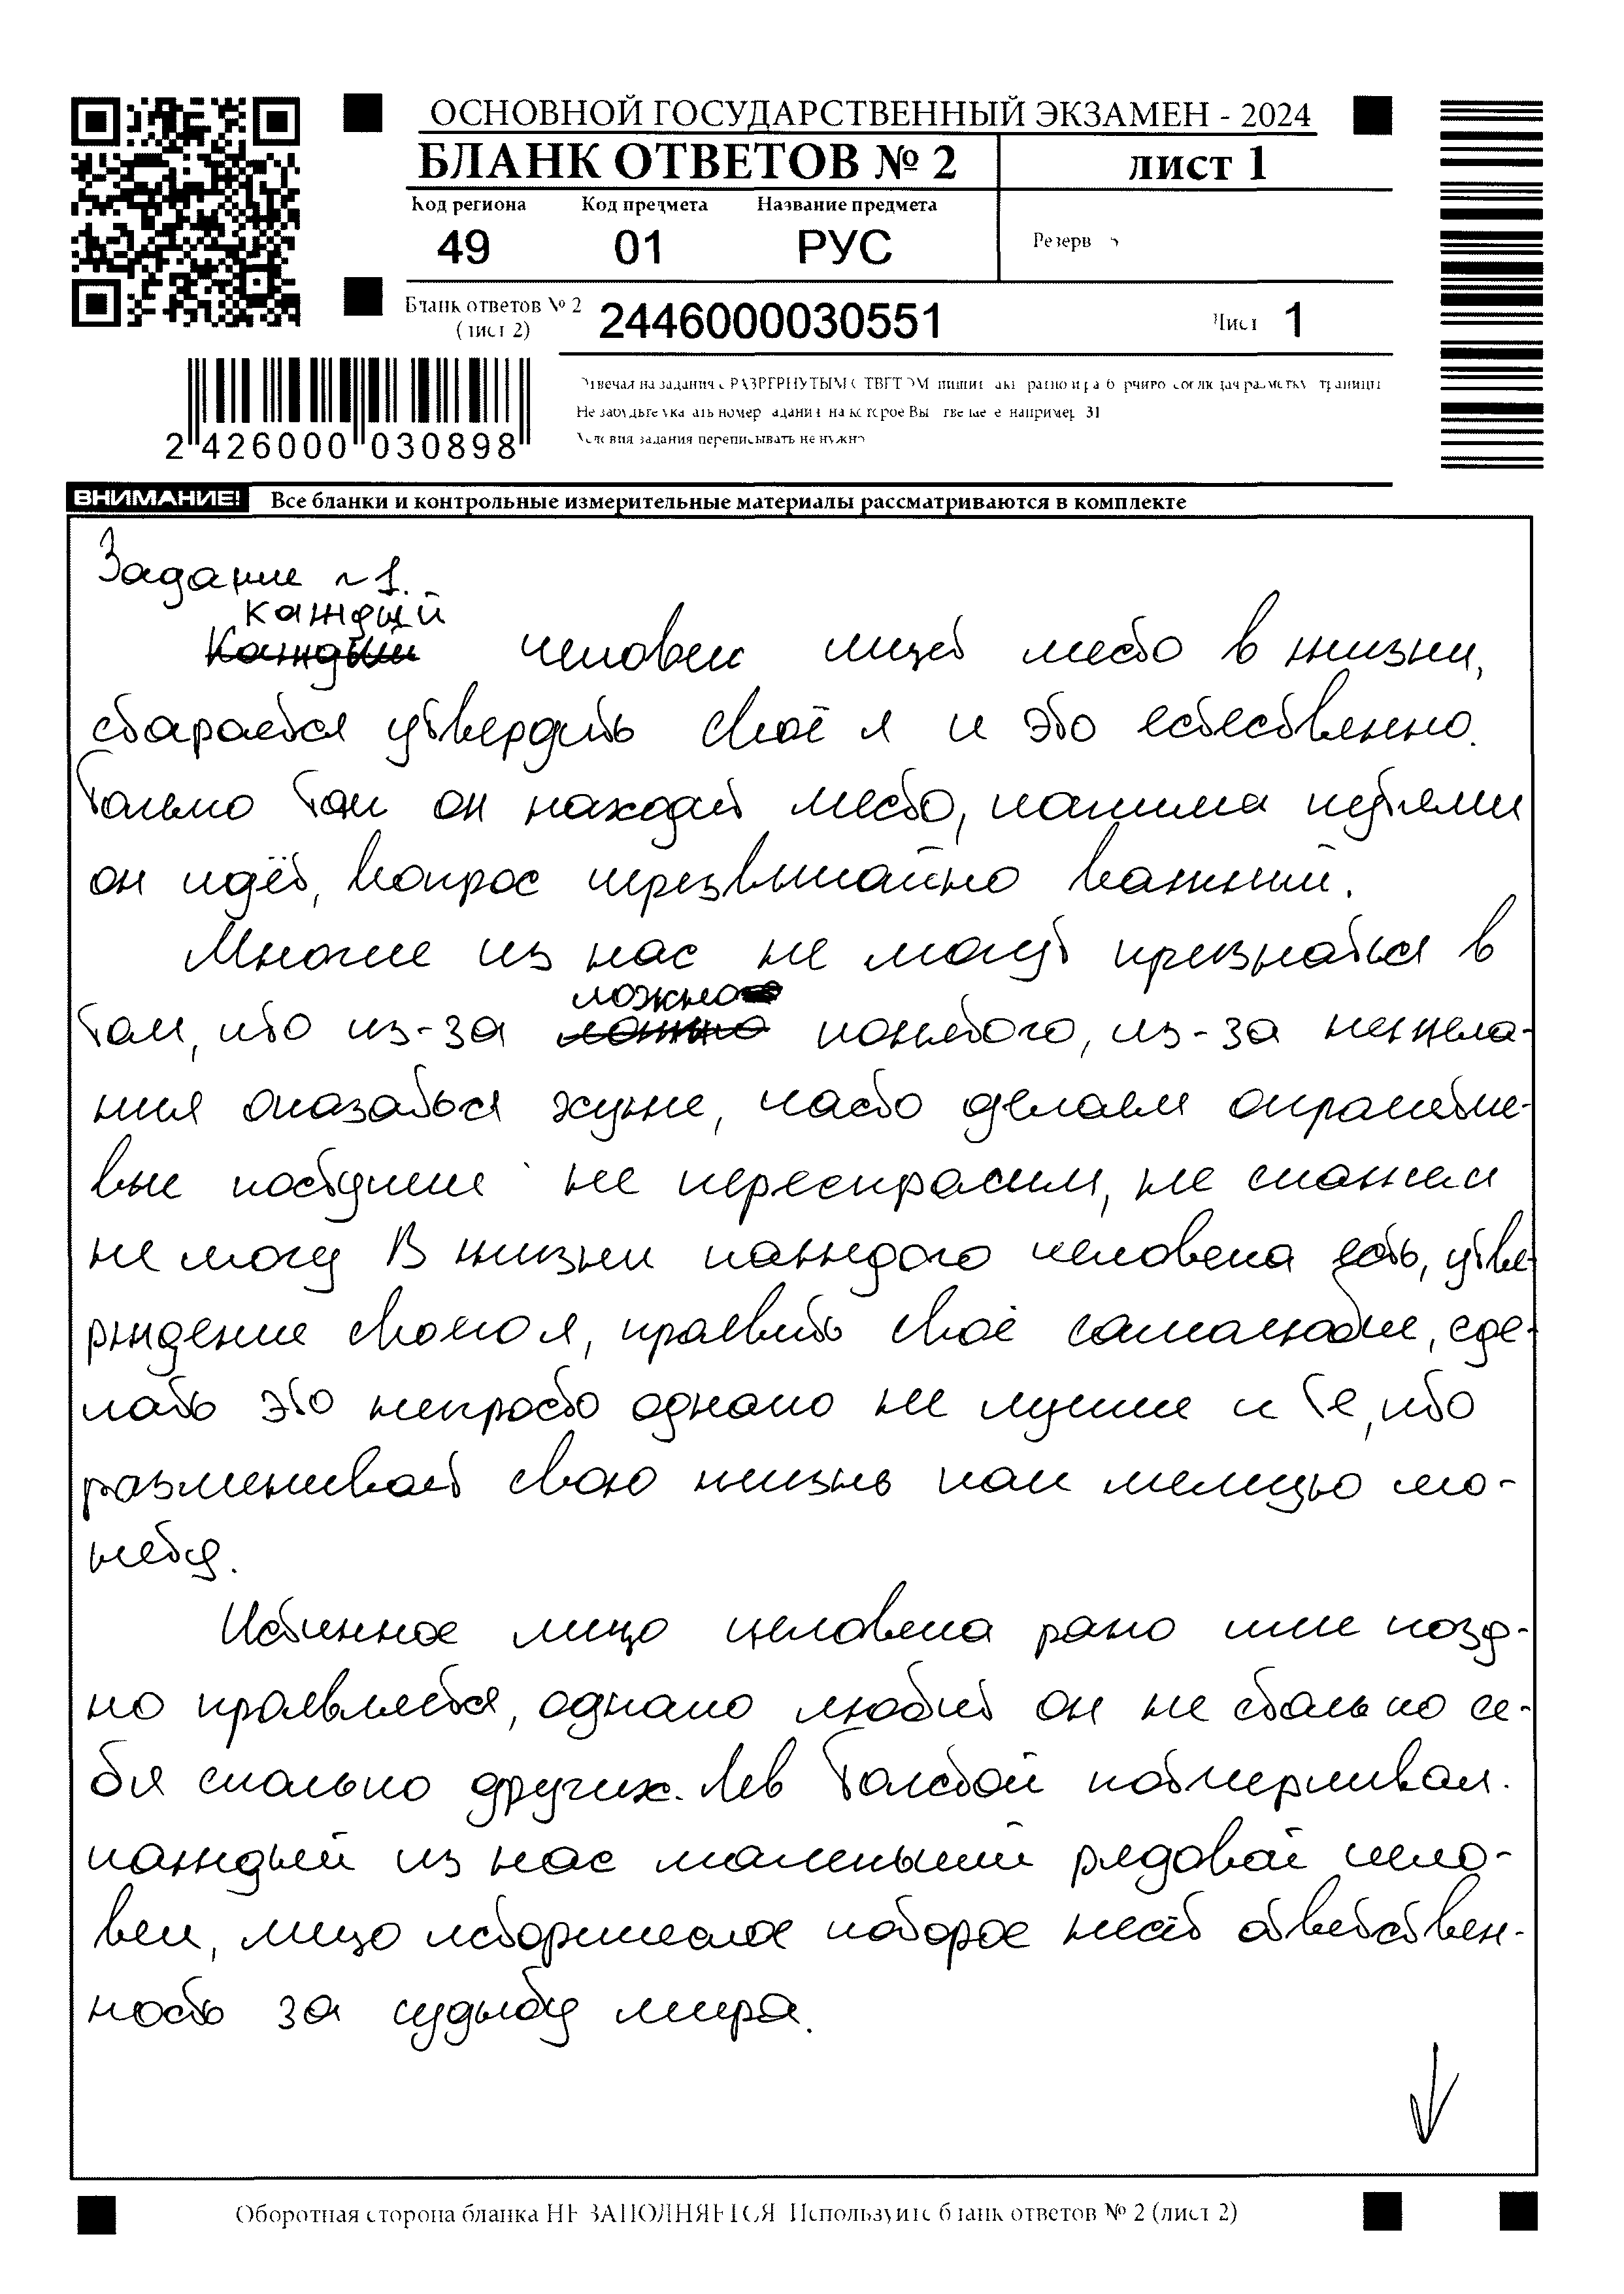 ОСНОВНОЙ ГОСУДАРСТВЕННЫЙ ЭКЗАМЕН - 2024
БЛАНК ОТВЕТОВ № 2
лист 1
Код региона Код предмета Название предмета
49 01 РУС
Резерв
Бланк ответов № 2 (лист 2)
2446000030551
Лист 1
2 426000 030898
Отвечая на задания с РАЗВЕРНУТЫМ ОТВЕТОМ, пишите аккуратно и разборчиво, соблюдая разметку страницы
Не забудьте указать номер задания, на которое Вы отвечаете, например 31
Условия задания переписывать не нужно
ВНИМАНИЕ! Все бланки и контрольные измерительные материалы рассматриваются в комплекте
Задание №1.
каждый
человек ищет место в жизни,
старается утвердить своё я и это естественно.
Только там он находит место, какима путями
он идёт, вопрос чрезвычайно важный.
Многие из нас не могут признаться в
том, что из-за ложно понятого, из-за нежела-
ния оказаться хуже, часто делаем опрометчи-
вые поступки не переспрасим, не скажем
не могу В жизни каждого человека есть, утве-
рждение своего я, проевить своё самолюбие, сде-
лать это непросто однако не лучше и те, кто
разменивает свою жизнь как мелкую мо-
нету.
Истинное лицо человека рано или позд-
но проевляется, однако любит он не столько се-
бя сколько других. Лев Толстой подчеркивал.
каждый из нас маленький рядовой чело-
век, лицо историческое которое несёт ответствен-
ность за судьбу мира.
Оборотная сторона бланка НЕ ЗАПОЛНЯЕТСЯ. Используйте бланк ответов № 2 (лист 2)